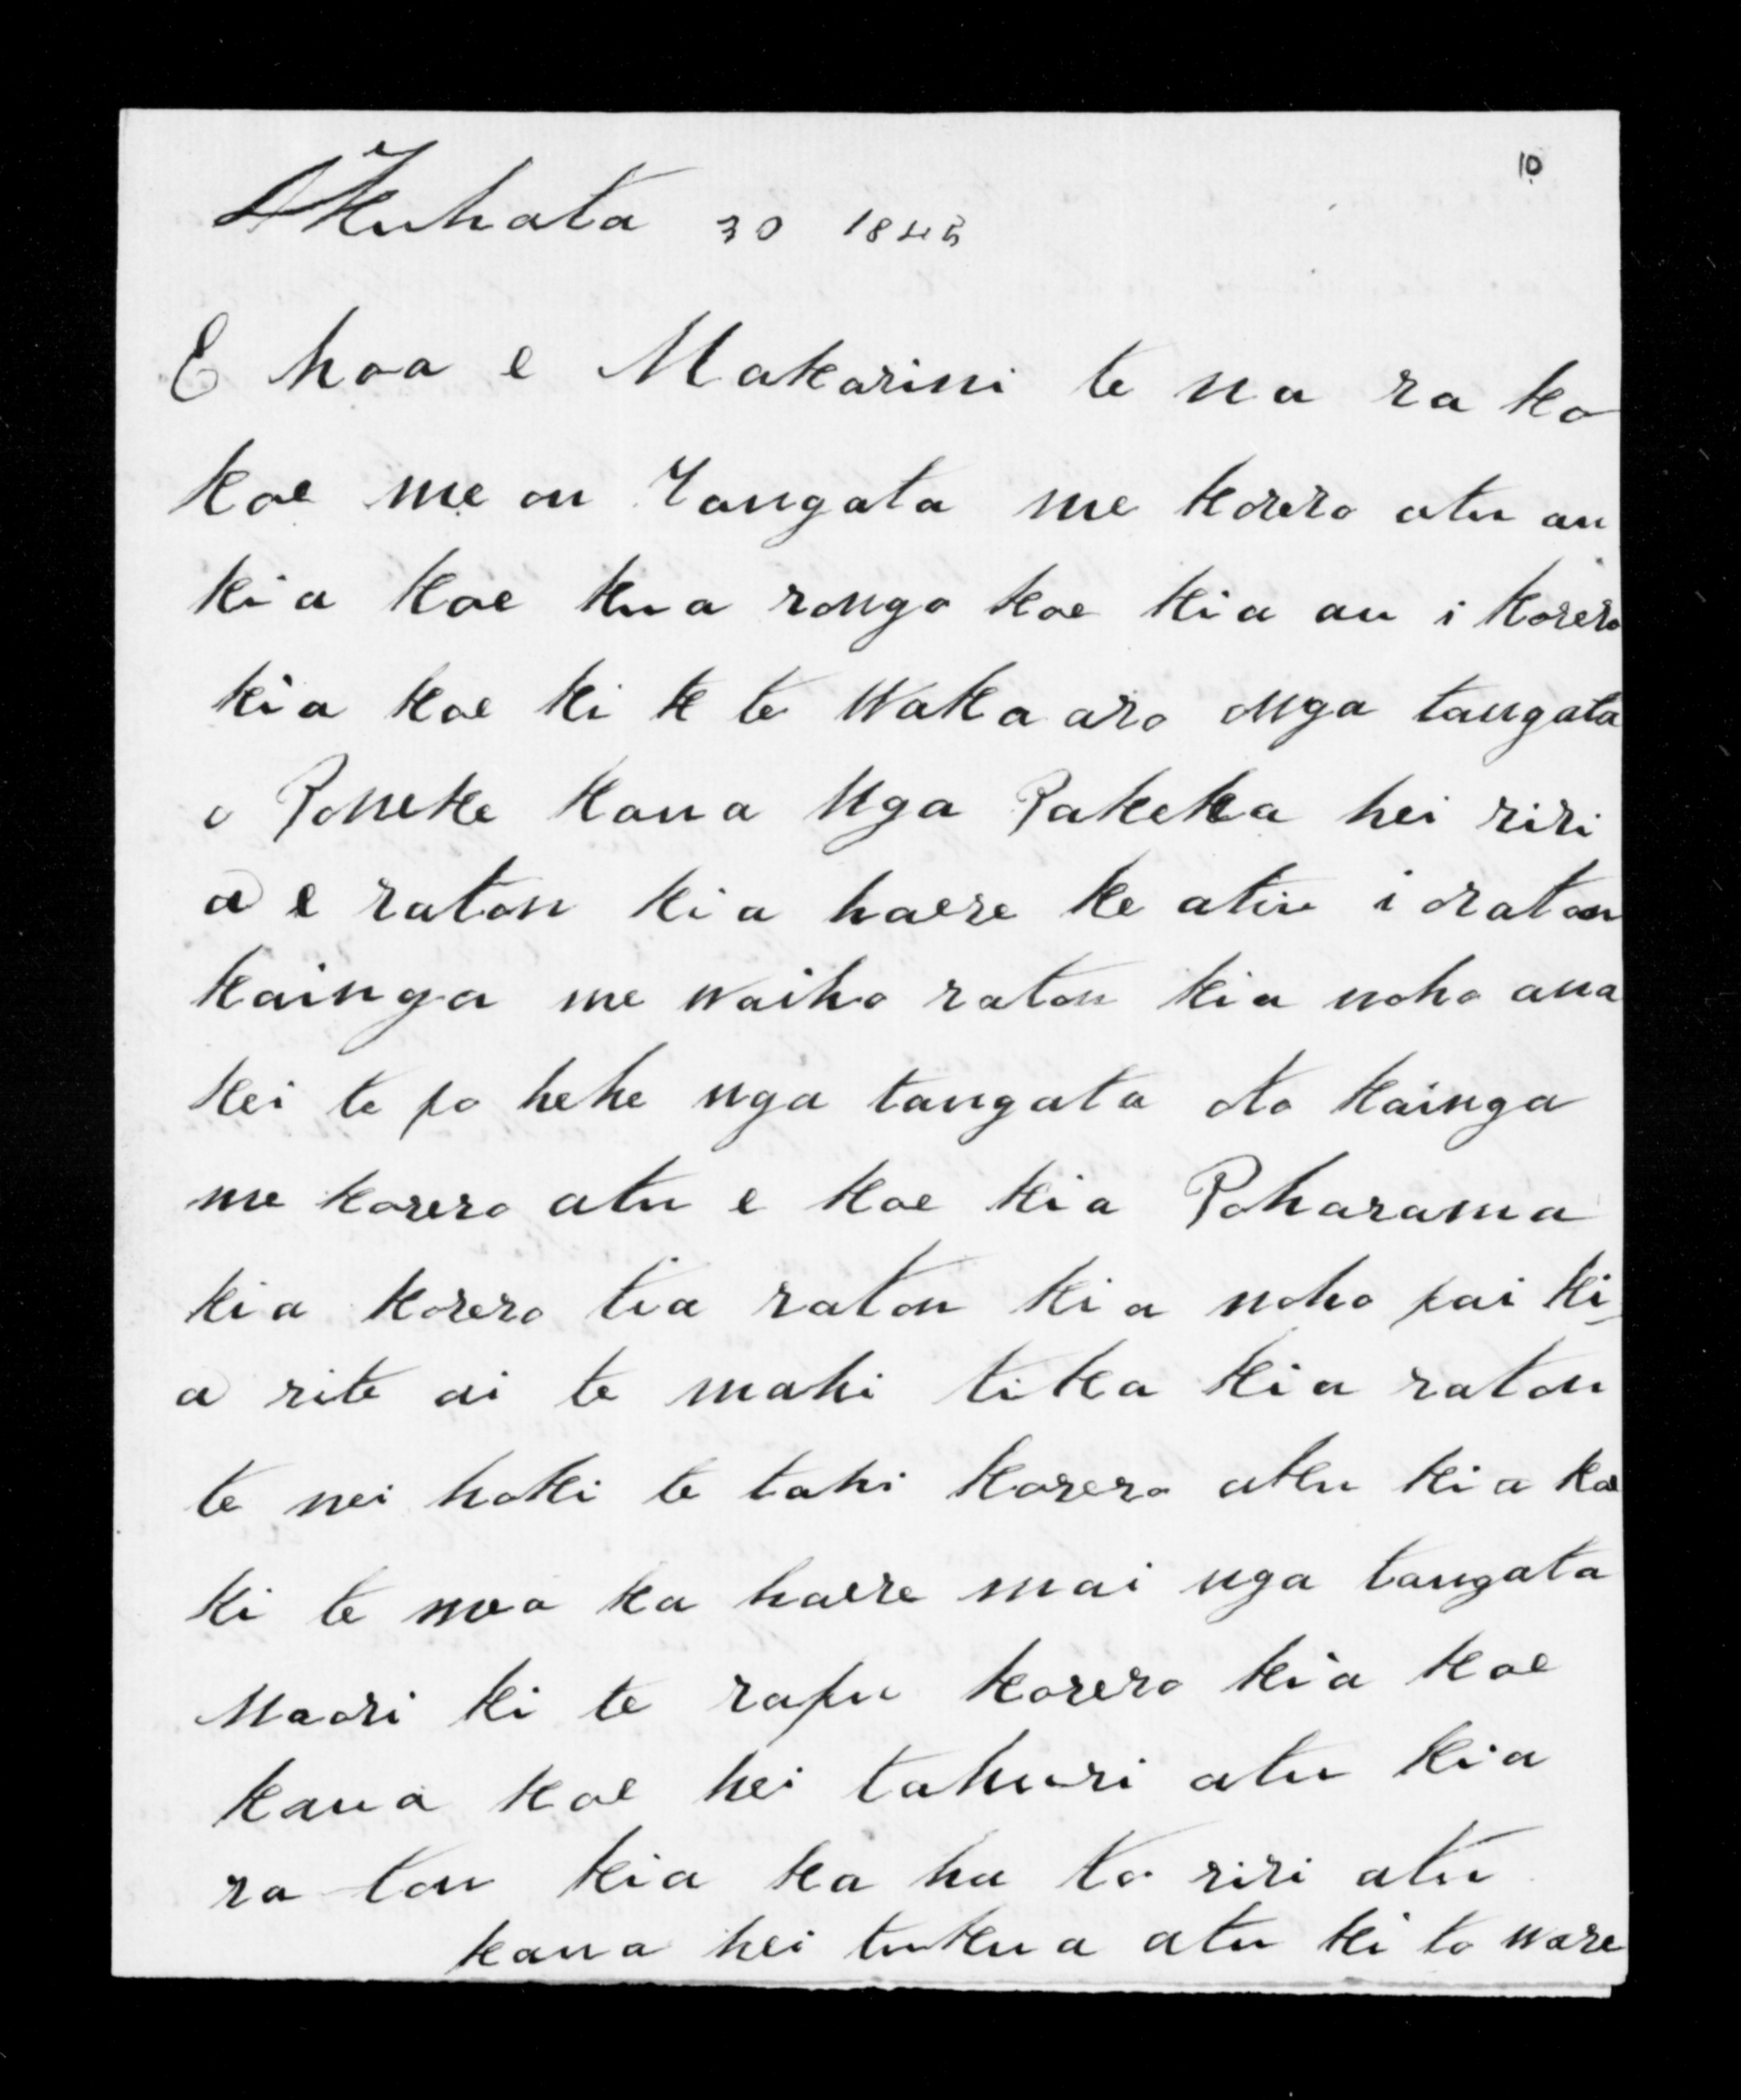 10
Akuhata 30 1845
E hoa e Makarini te na ra ko
koe me ou Tangata me korero atu au
kia koe kua rongo koe kia au i korero
kia koe ki k te Waka aro onga tangata
o Poneke kaua Nga Pakeka hei riri
a e ratou kia haere ke atu i oratou
kainga me waiho ratou kia noho ana
kei te po hehe nga tangata oto kainga
me korero atu e koe kia Poharama
kia korero tia ratou kia noho pai ki-
a rite ai te mahi tika kia ratou
te nei hoki te tahi korero aku kia koe
ki te mea ka haere mai nga tangata
Maori ki te rapu korero kia koe
kaua koe hei tahuri atu kia
ra tou kia ka ha to riri atu
kaua hei tukua atu ki to ware